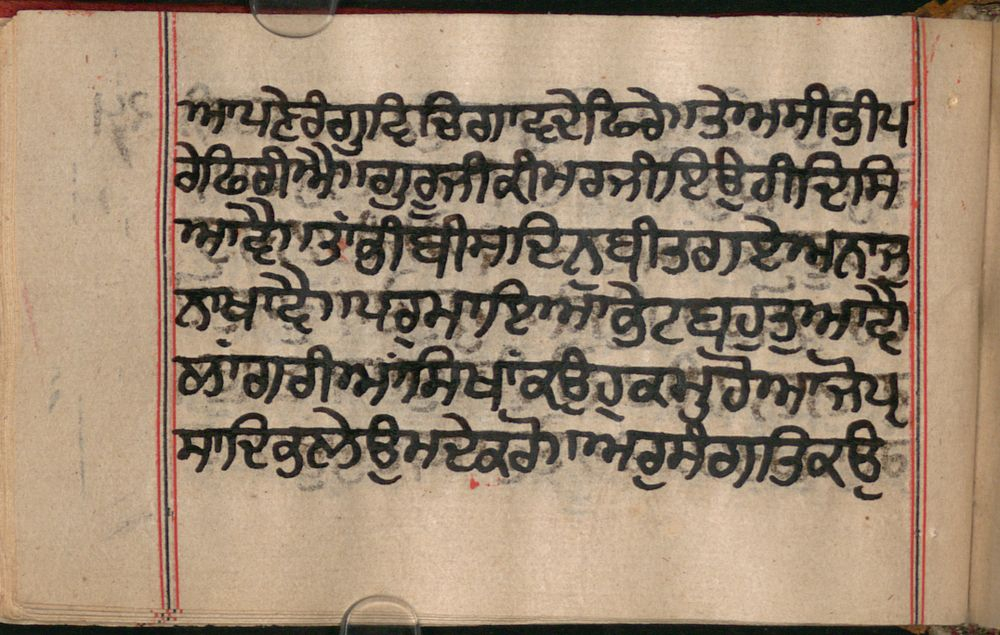 ਆਪਣੇਰੰਗੁਵਿਚਿਗਾਵਦੇਫਿਰੇ॥ਤੇਅਸੀਭੀਪ
ਰੇਫਿਰੀਐ॥ਗੁਰੂਜੀਕੀਮਰਜੀਇਉਹੀਦਿਸਿ
ਆਵੈ॥ਤਾਂਭੀਬੀਸਾਦਿਨਬੀਤਗਏਅਨਾਜੁ
ਨਾਖਾਵੈ॥ਪਰੁਮਾਇਆਭੇਟਬਹੁਤੁਆਵੈ॥
ਲਾਂਗਰੀਆਂਸਿਖਾਂਕਉਹੁਕਮੁਹੋਆਜੋਪ੍ਰ
ਸਾਦਿਕੁਣਲੇਉਮਦੇਕਰੋ॥ਅਰੁਸੰਗਤਿਕਉ